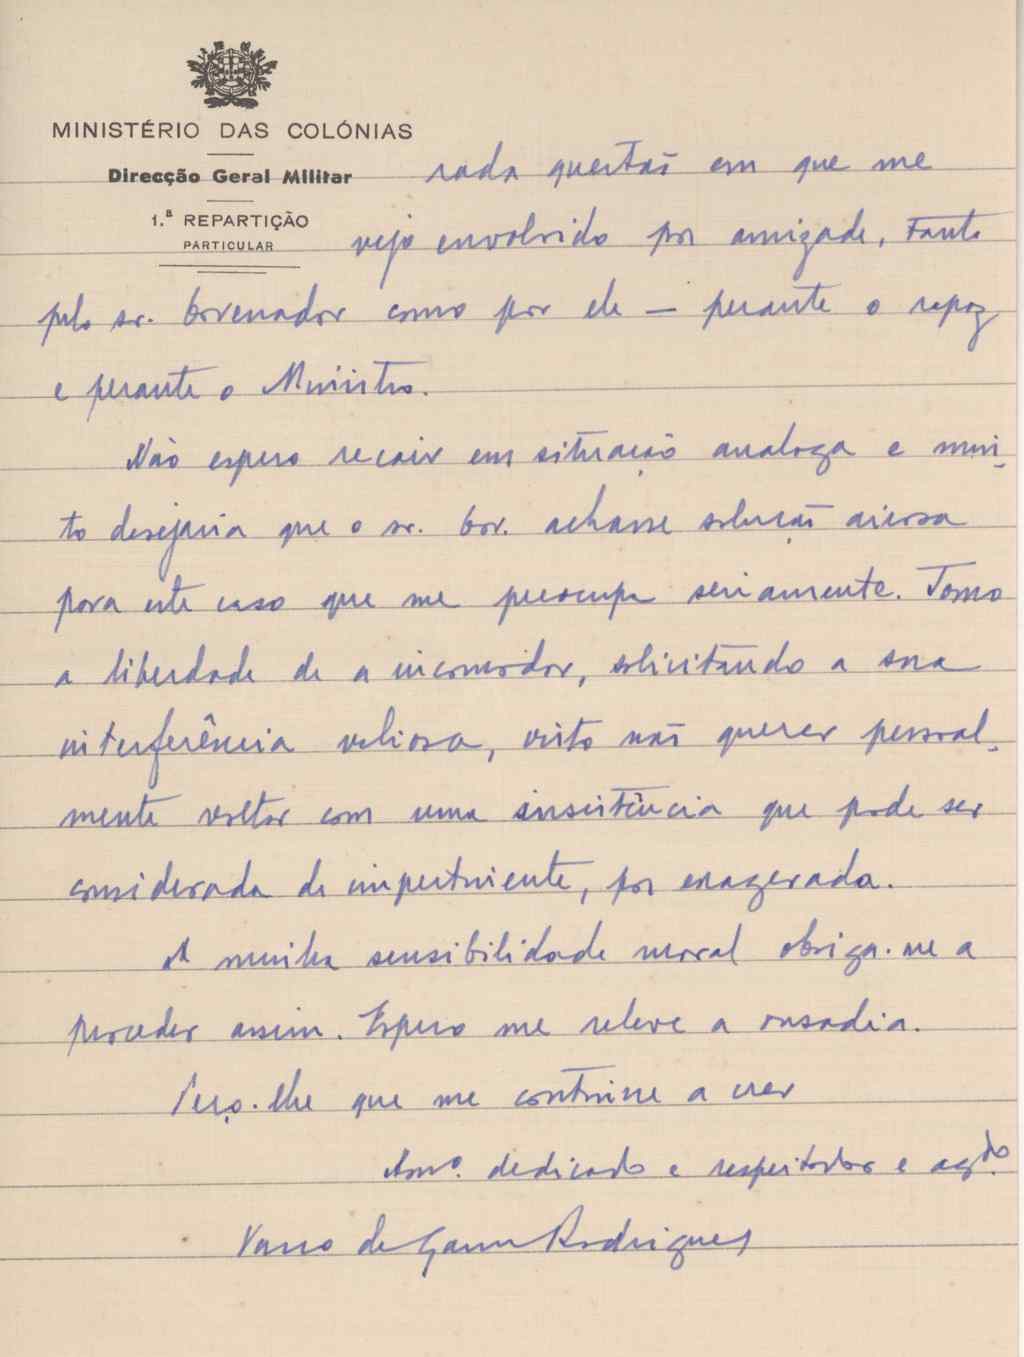 MINISTÉRIO DAS COLÓNIAS
Direcção Geral Militar
1.ª REPARTIÇÃO
PARTICULAR
rada questão em que me
vejo envolvido por amizade, tanto
pelo sr. Governador como por ele — perante o rapaz
e perante o Ministro.
Não espero recair em situação analoga e mui-
to desejaria que o sr. Gov. achasse solução airosa
para este caso que me preocupa seriamente. Tomo
a liberdade de a incomodar, solicitando a sua
interferência valiosa, visto não querer pessoal-
mente voltar com uma insistência que pode ser
considerada de impertinente, por exagerada.
A minha sensibilidade moral obriga-me a
proceder assim. Espero me releve a ousadia.
Peço-lhe que me continue a crer
Amº. dedicado e respeitador e agdo.
Vasco de Gama Rodrigues